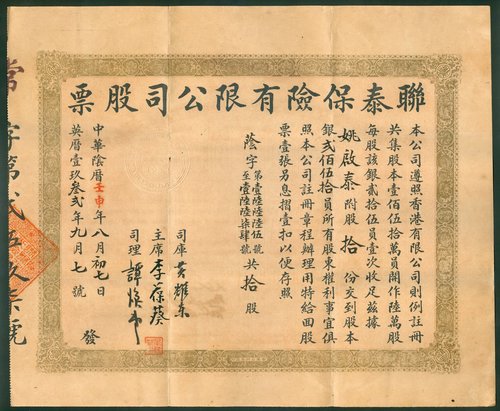 聯泰保險有限公司股票
本公司遵照香港有限公司則例註冊
共集股本壹佰伍拾萬員開作陸萬股
每股該銀貳拾伍員壹次收足茲據
姚啟泰附股拾份交到股本
銀貳佰伍拾員所有股東權利事宜俱
照本公司註冊章程辦理用特給回股
票壹張另息摺壹扣以便存照
蔭字第壹陸陸陸伍號至壹陸陸柒肆號共拾股
司庫黃耀東
主席李葆葵
司理譚煥
中華陰曆壬申年八月初七日
英曆壹玖叁貳年九月七號發
字第貳